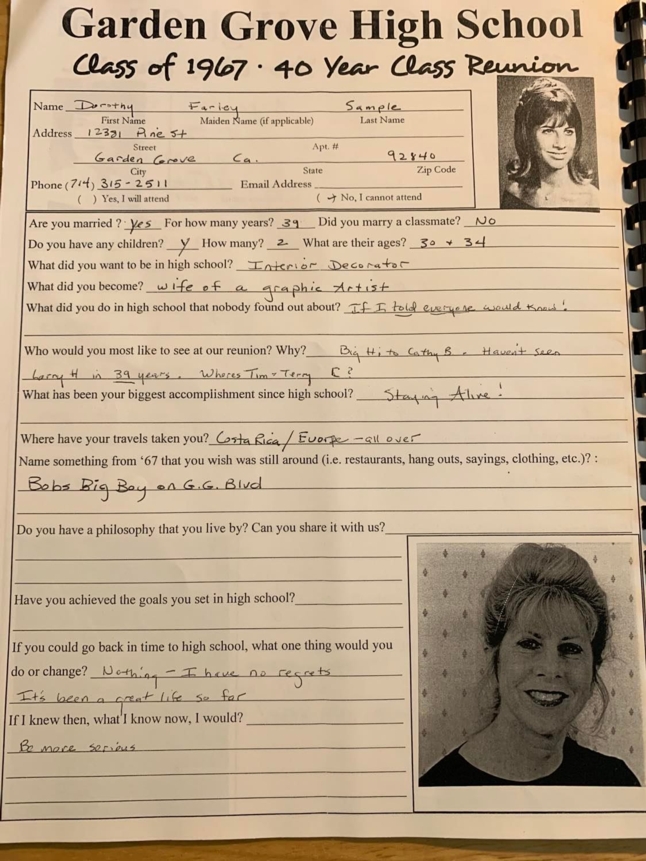 Garden Grove High School
Class of 1967 · 40 Year Class Reunion
Name Dorothy Farley Sample
First Name Maiden Name (if applicable) Last Name
Address 12381 Pine St
Street Apt. #
Garden Grove Ca. 92840
City State Zip Code
Phone (714) 315-2511 Email Address
( ) Yes, I will attend ( → No, I cannot attend
Are you married ? Yes For how many years? 39 Did you marry a classmate? No
Do you have any children? Y How many? 2 What are their ages? 30 + 34
What did you want to be in high school? Interior Decorator
What did you become? wife of a graphic Artist
What did you do in high school that nobody found out about? If I told everyone would know!
Who would you most like to see at our reunion? Why? Big Hi to Cathy B. Haven't seen
Larry H in 39 years. Wheres Tim + Terry C?
What has been your biggest accomplishment since high school? Staying Alive!
Where have your travels taken you? Costa Rica / Euorpe - all over
Name something from '67 that you wish was still around (i.e. restaurants, hang outs, sayings, clothing, etc.)? :
Bobs Big Boy on G.G. Blvd
Do you have a philosophy that you live by? Can you share it with us?
Have you achieved the goals you set in high school?
If you could go back in time to high school, what one thing would you
do or change? Nothing - I have no regrets
It's been a great life so far
If I knew then, what I know now, I would?
Be more serious